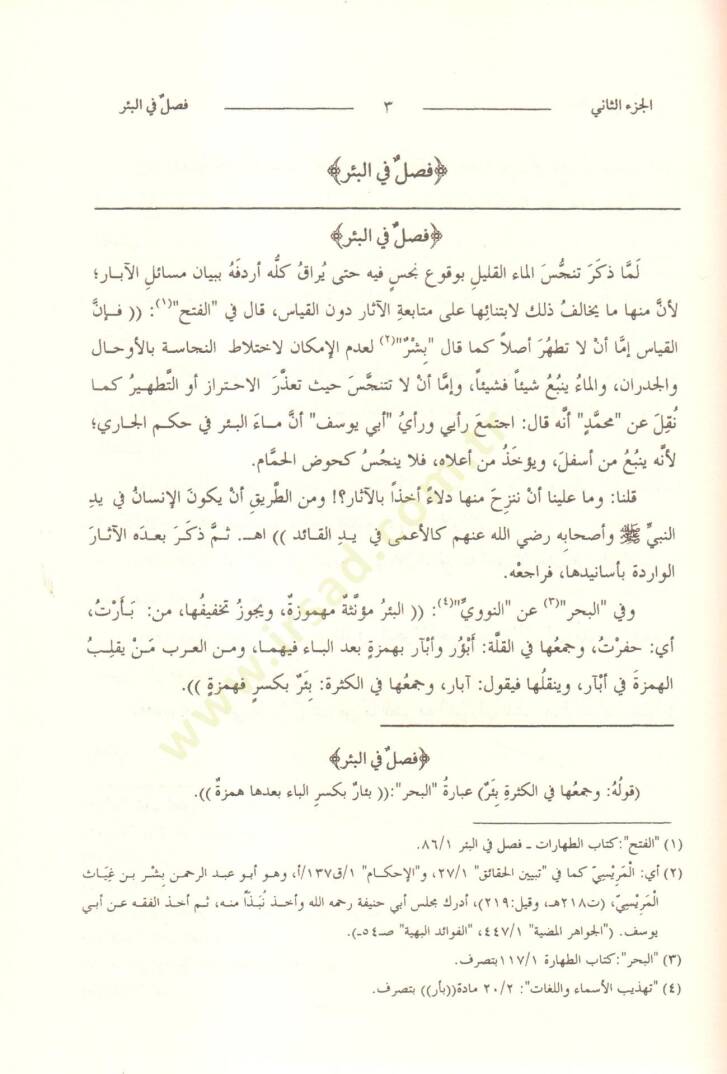 الجزء الثاني ٣ فصلٌ في البئر
﴿فصلٌ في البئر﴾
﴿فصلٌ في البئر﴾
لَمَّا ذكَرَ تنجُّسَ الماء القليل بوقوع نجسٍ فيه حتى يُراقُ كلُّه أردفَهُ ببيان مسائلِ الآبار؛
لأنَّ منها ما يخالفُ ذلك لابتنائِها على متابعةِ الآثار دون القياس، قال في "الفتح"(١): (( فـإنَّ
القياس إمَّا أنْ لا تطهُرَ أصلاً كما قال "بِشْرٌ"(٢) لعدم الإمكان لاختلاط النجاسة بالأوحال
والجدران، والماءُ ينبُعُ شيئاً فشيئاً، وإمَّا أنْ لا تتنجَّسَ حيث تعذَّرَ الاحتراز أو التَّطهـيرُ كمـا
نُقِلَ عن "محمَّدٍ" أنَّه قال: اجتمعَ رأيي ورأيُ "أبي يوسف" أنَّ مـاءَ البـئر في حكـم الجـاري؛
لأنَّه ينبُعُ من أسفلَ، ويؤخَذُ من أعلاه، فلا ينجُسُ كحوض الحمَّام.
قلنا: وما علينا أنْ ننزِحَ منها دلاءً أخذاً بالآثار؟! ومن الطَّريقِ أنْ يكونَ الإنسانُ في يدِ
النبيِّ ﷺ وأصحابِه رضي الله عنهم كالأعمى في يـدِ القـائد )) اهـ. ثـمَّ ذكَـرَ بعـدَه الآثـارَ
الواردة بأسانيدها، فراجعْه.
وفي "البحر"(٣) عن "النوويِّ"(٤): (( البئرُ مؤنَّثةٌ مهموزةٌ، ويجوزُ تخفيفُها، من: بَـأَرْتُ،
أي: حفرْتُ، وجمعُها في القلَّة: أَبْؤُر وأَبْآر بهمزةٍ بعد البـاء فيهمـا، ومـن العرب مَـنْ يقلِـبُ
الهمزةَ في أَبْآر، وينقلُها فيقول: آبار، وجمعُها في الكثرة: بِئَرٌ بكسرٍ فهمزةٍ )).
﴿فصلٌ في البئر﴾
(قولُهُ: وجمعُها في الكثرةِ بِئَرٌ) عبارةُ "البحر":(( بئارٌ بكسرِ الباء بعدها همزةٌ )).
(١) "الفتح": كتاب الطهارات ـ فصل في البئر ٨٦/١.
(٢) أي: الْمَرِيْسِيّ كما في "تبيين الحقائق" ٢٧/١، و"الإحكام" ١/ق١٣٧/أ، وهـو أبـو عبـد الرحمـن بِشْـر بـن غِيَـاث
الْمَرِيْسِيّ، (ت٢١٨هـ، وقيل:٢١٩)، أدرك مجلس أبي حنيفة رحمه الله وأخـذ نُبَـذَاً منـه، ثـم أخـذ الفقـه عـن أبـي
يوسف. ("الجواهر المضية" ٤٤٧/١، "الفوائد البهية" صـ٥٤ـ).
(٣) "البحر": كتاب الطهارة ١١٧/١بتصرف.
(٤) "تهذيب الأسماء واللغات": ٢٠/٢ مادة((بأر)) بتصرف.
www.irsad.com.tr